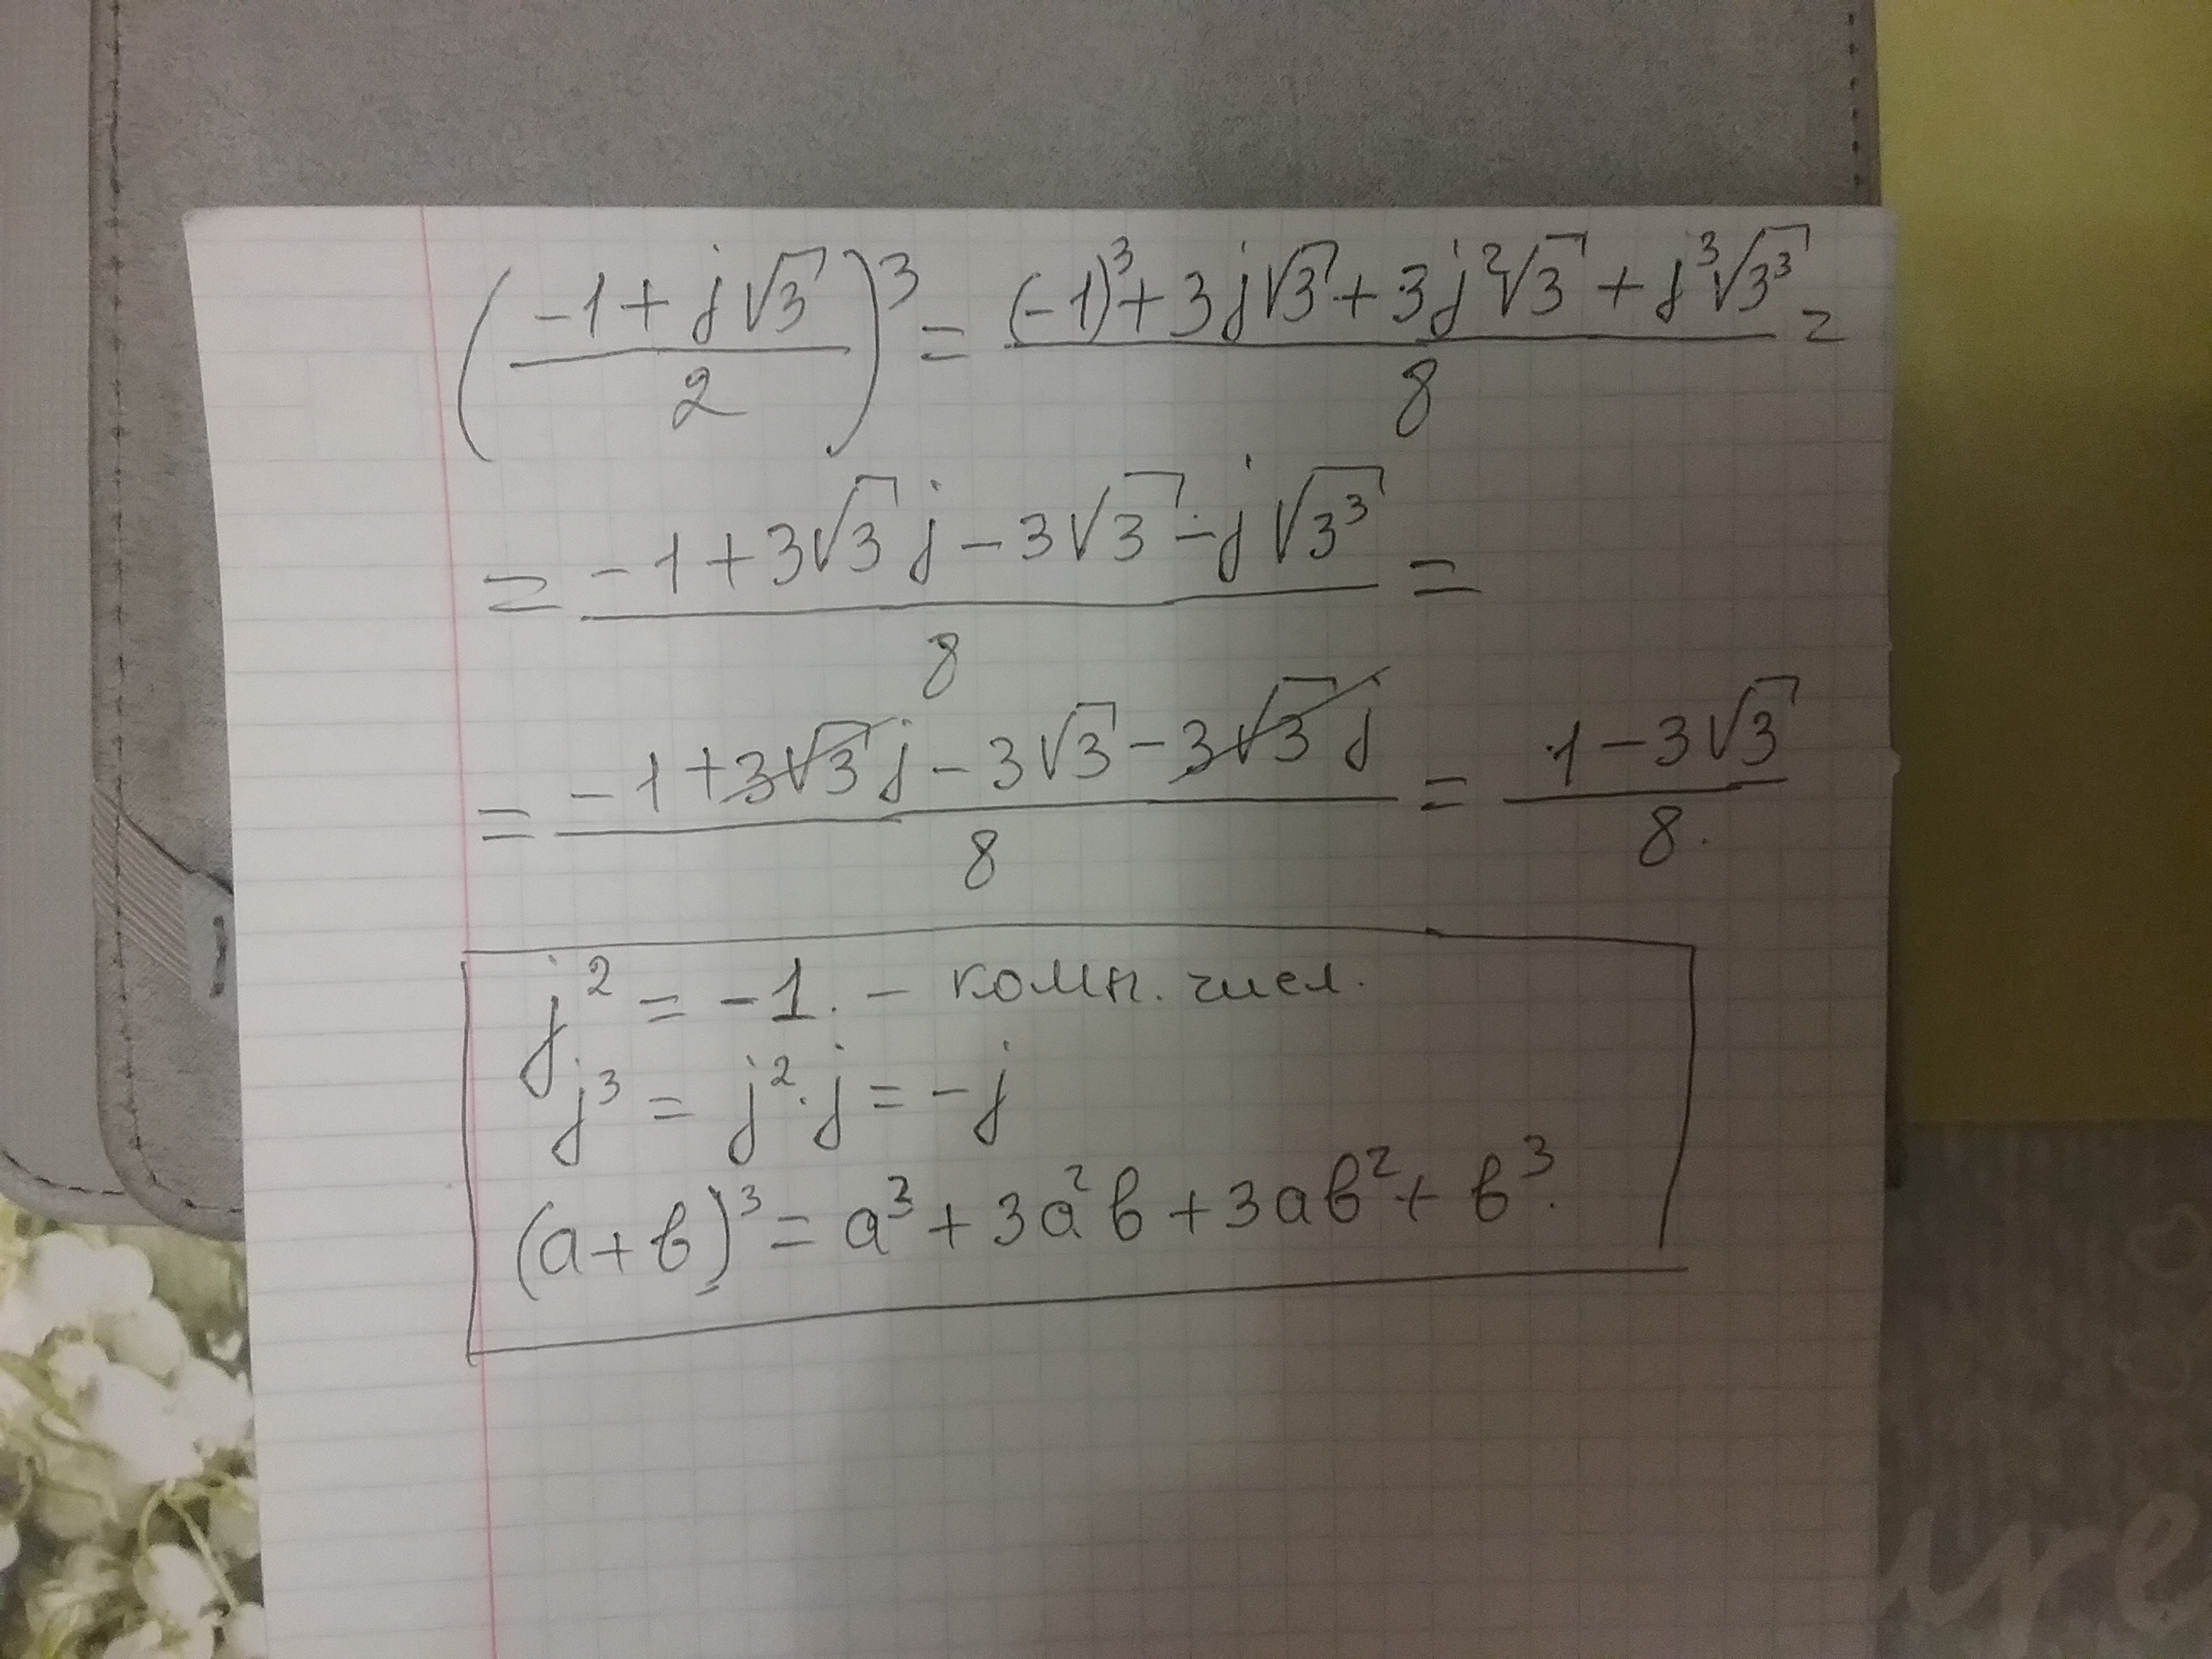 (\frac{-1+j\sqrt{3}}{2})^3 = \frac{(-1)^3+3j\sqrt{3}+3j^2\sqrt{3}+j^3\sqrt{3^3}}{8} =
= \frac{-1+3\sqrt{3}j-3\sqrt{3}-j\sqrt{3^3}}{8} =
= \frac{-1+3\sqrt{3}j-3\sqrt{3}-3\sqrt{3}j}{8} = \frac{1-3\sqrt{3}}{8}.
j^2 = -1. - комп. чисел.
j^3 = j^2·j = -j
(а+в)^3 = а^3+3а^2в+3ав^2+в^3.